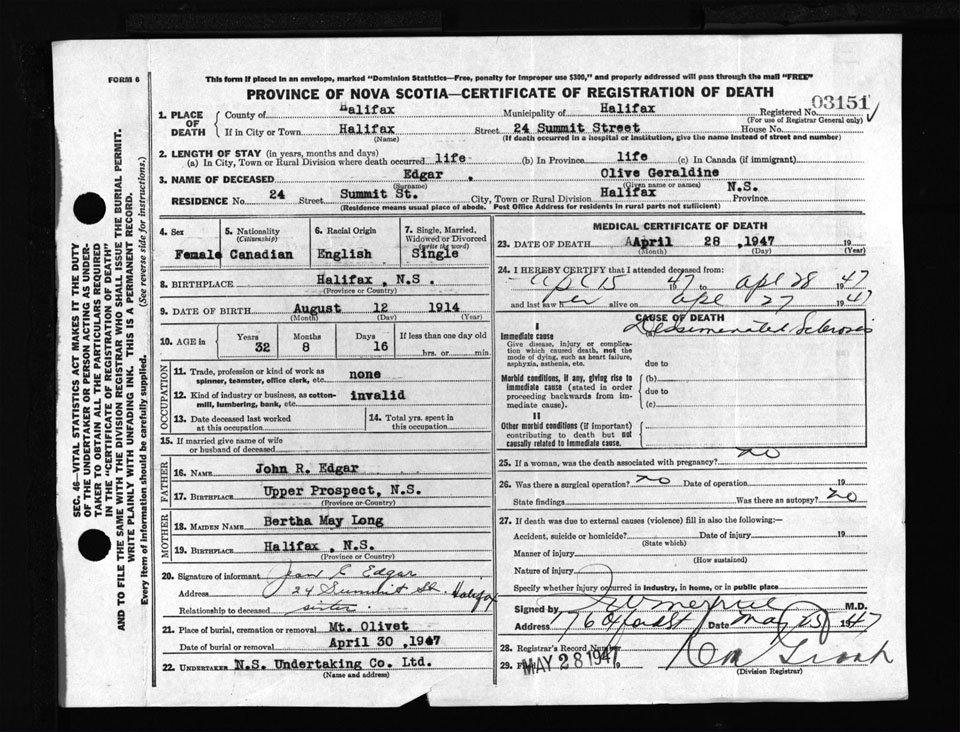 FORM 6
This form if placed in an envelope, marked "Dominion Statistics—Free, penalty for improper use $300," and properly addressed will pass through the mail "FREE"
PROVINCE OF NOVA SCOTIA—CERTIFICATE OF REGISTRATION OF DEATH
SEC. 46—VITAL STATISTICS ACT MAKES IT THE DUTY
OF THE UNDERTAKER OR PERSON ACTING AS UNDER-
TAKER TO OBTAIN ALL THE PARTICULARS REQUIRED
IN THE "CERTIFICATE OF REGISTRATION OF DEATH"
AND TO FILE THE SAME WITH THE DIVISION REGISTRAR WHO SHALL ISSUE THE BURIAL PERMIT.
WRITE PLAINLY WITH UNFADING INK. THIS IS A PERMANENT RECORD.
Every item of information should be carefully supplied. (See reverse side for instructions.)
1. PLACE OF DEATH
County of Halifax Municipality of Halifax Registered No. 03151
(For use of Registrar General only)
If in City or Town Halifax Street 24 Summit Street House No.
(Name) (If death occurred in a hospital or institution, give the name instead of street and number)
2. LENGTH OF STAY (in years, months and days)
(a) In City, Town or Rural Division where death occurred life (b) In Province life (c) In Canada (if immigrant)
3. NAME OF DECEASED Edgar, Olive Geraldine
(Surname) (Given name or names)
RESIDENCE No. 24 Street Summit St. City, Town or Rural Division Halifax Province N.S.
(Residence means usual place of abode. Post Office Address for residents in rural parts not sufficient)
4. Sex Female
5. Nationality (Citizenship) Canadian
6. Racial Origin English
7. Single, Married, Widowed or Divorced (write the word) Single
8. BIRTHPLACE Halifax, N.S.
(Province or Country)
9. DATE OF BIRTH August 12 1914
(Month) (Day) (Year)
10. AGE in Years 32 Months 8 Days 16 If less than one day old hrs. or min.
OCCUPATION
11. Trade, profession or kind of work as spinner, teamster, office clerk, etc. none
12. Kind of industry or business, as cotton-mill, lumbering, bank, etc. invalid
13. Date deceased last worked at this occupation
14. Total yrs. spent in this occupation
15. If married give name of wife or husband of deceased
FATHER
16. NAME John R. Edgar
17. BIRTHPLACE Upper Prospect, N.S.
(Province or Country)
MOTHER
18. MAIDEN NAME Bertha May Long
19. BIRTHPLACE Halifax, N.S.
(Province or Country)
20. Signature of informant Edgar
Address 24 Summit St. Halifax
Relationship to deceased sister.
21. Place of burial, cremation or removal Mt. Olivet
Date of burial or removal April 30, 1947
22. UNDERTAKER N.S. Undertaking Co. Ltd.
(Name and address)
MEDICAL CERTIFICATE OF DEATH
23. DATE OF DEATH April 28, 1947 19
(Month) (Day) (Year)
24. I HEREBY CERTIFY that I attended deceased from:
Apl 15 1947 to apl 28 1947
and last saw her alive on apl 27 1947
CAUSE OF DEATH
I
Immediate cause Disseminated Sclerosis
Give disease, injury or complica-
tion which caused death, not the
mode of dying, such as heart failure,
asphyxia, asthenia, etc.
due to
Morbid conditions, if any, giving rise to
immediate cause (stated in order
proceeding backwards from im-
mediate cause).
(b)
due to
(c)
II
Other morbid conditions (if important)
contributing to death but not
causally related to immediate cause.
25. If a woman, was the death associated with pregnancy? no
26. Was there a surgical operation? no Date of operation 19
State findings Was there an autopsy? no
27. If death was due to external causes (violence) fill in also the following:—
Accident, suicide or homicide? Date of injury 19
(State which)
Manner of injury
(How sustained)
Nature of injury
Specify whether injury occurred in industry, in home, or in public place
Signed by M.D.
Address Date May 1947
28. Registrar's Record Number
29. MAY 28 1947 19
(Division Registrar)